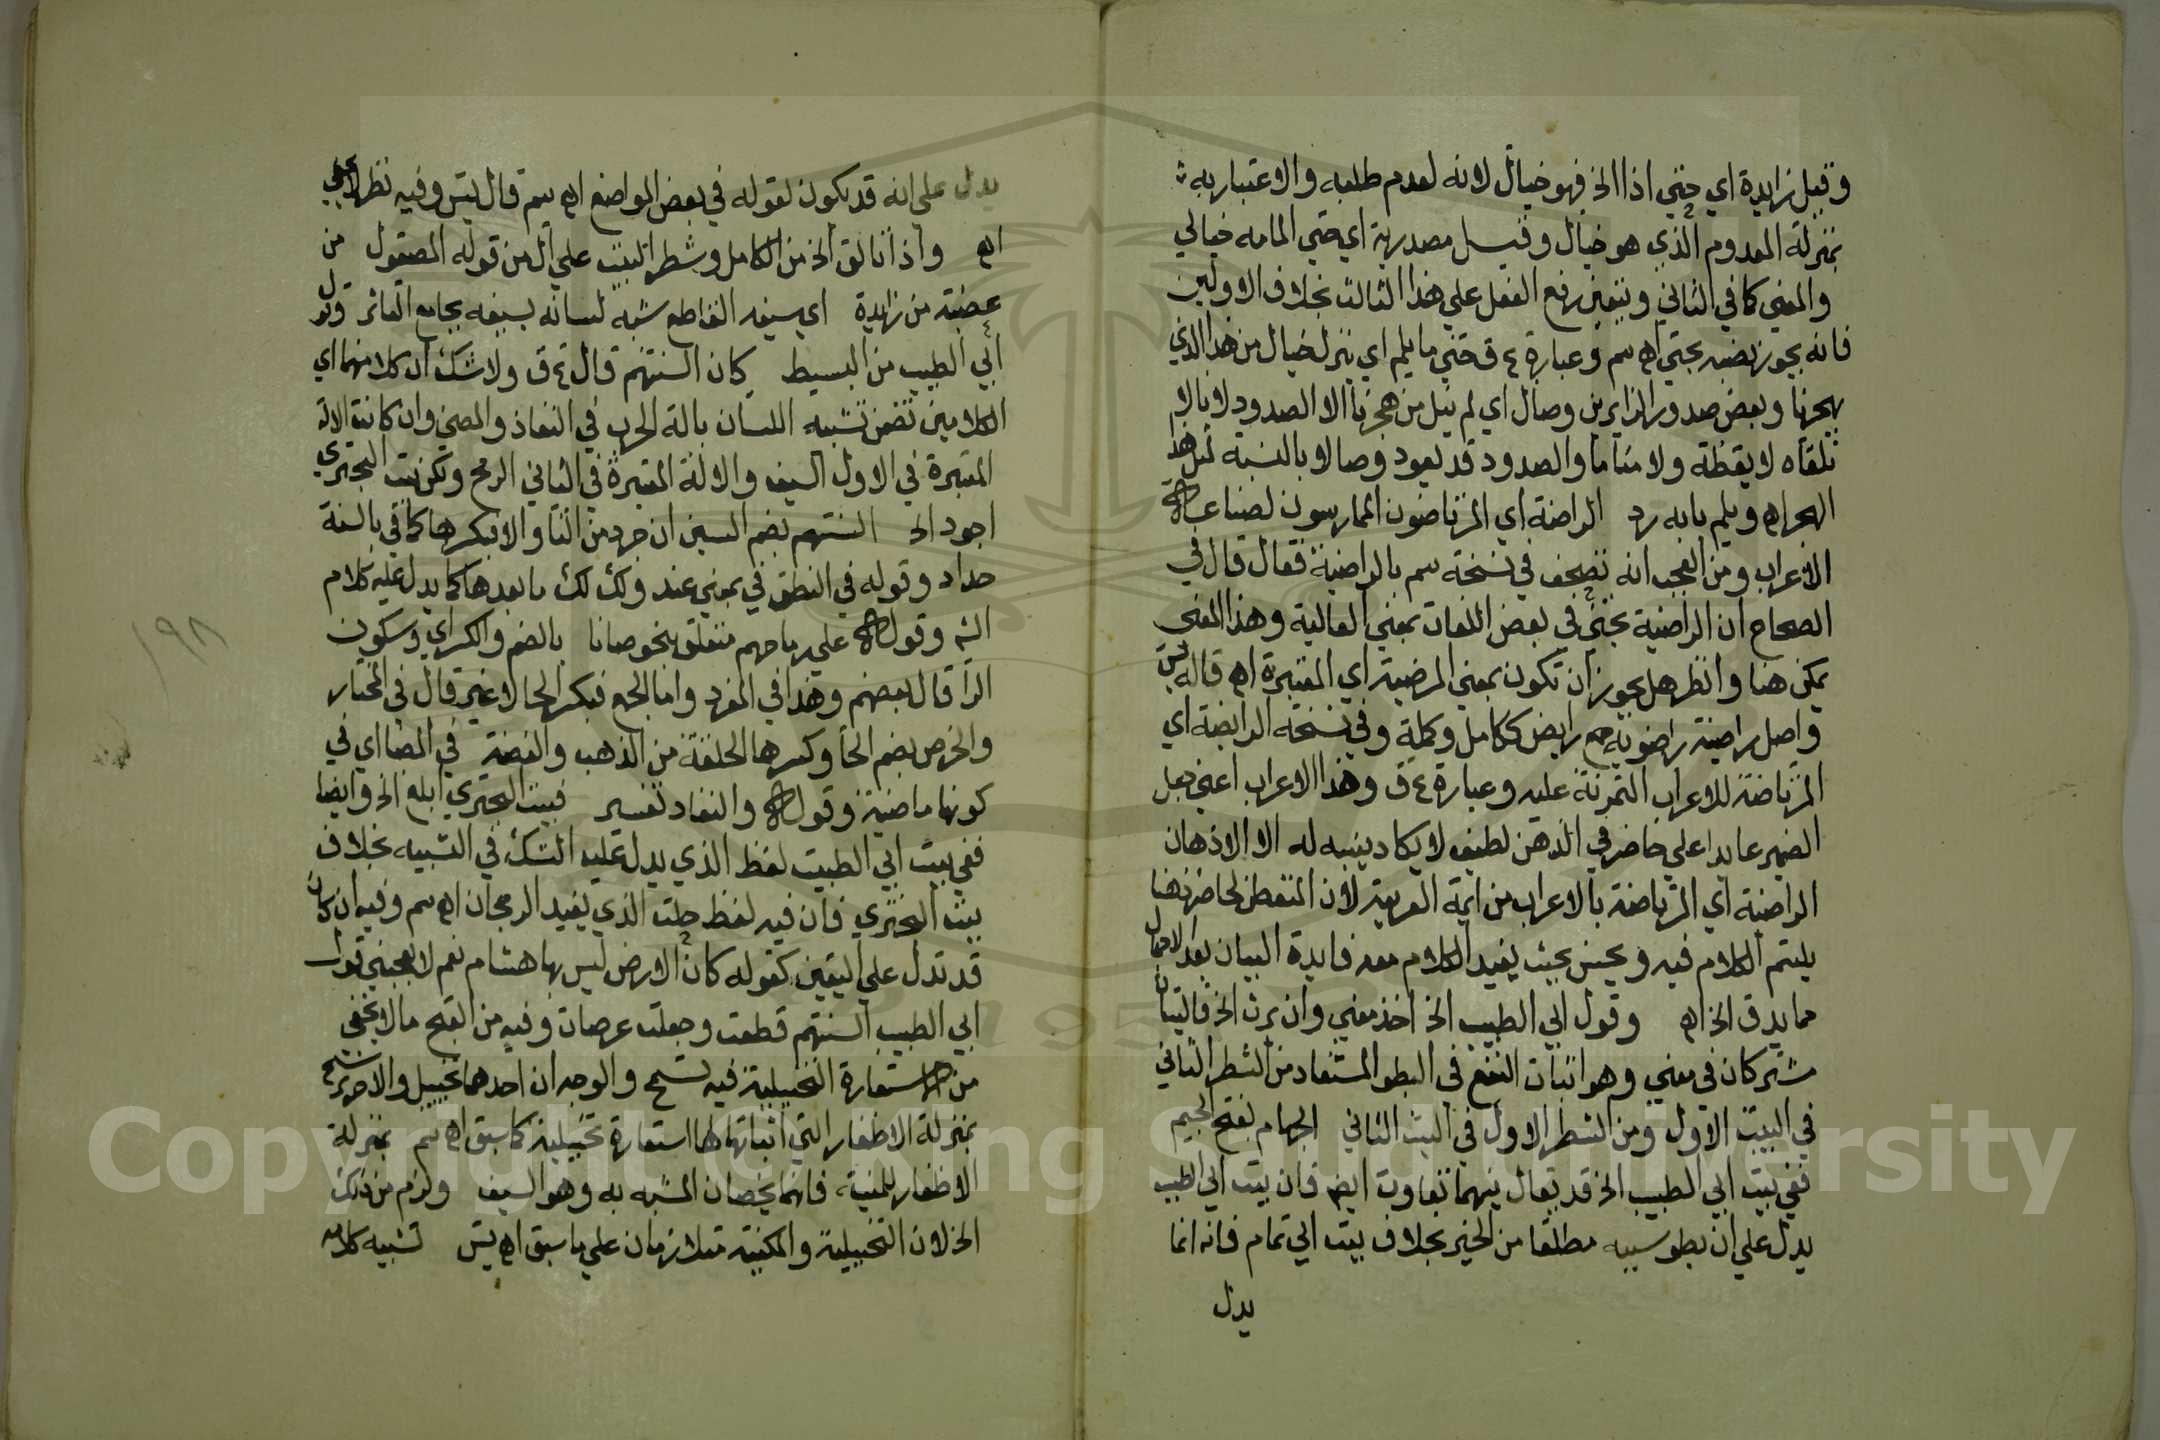 وقيل زايدة اي حتي اذا الخ فهو خيال لانه لعدم طلبه والاعتبار به
بمنزلة المعدوم الذي هو خيال وقيل مصدرية اي حتي المامه خيالي
والمعني كما في الثاني ويتعين رفع الفعل علي هذا الثالث بخلاف الاولين
فانه يجوز نصبه بحتي اه سم وعبارة ع ق حتي ما يلم اي ينزل خيال من هذا الذي
يهجرنا وبعض صدور الزايرين وصال اي لم ينل من هجرنا الا الصدود لا بالا
تلقاه لا يقظة ولا مناما والصدود قد يعود وصالا بالنسبة لمثل هذ
الهجر اه ويلم بابه رد الراضة اي المرتاضون الممارسون لصناعة
الاعراب ومن العجب انه تصحف في نسخة سم بالراضية فقال قال في
الصحاح ان الراضية تجئ في بعض اللغات بمعني العالية وهذا المعني
يمكن هنا وانظر هل يجوز ان تكون بمعني المرضية اي المعتبرة اه قاله يس
واصل راضة روضة جمع رايض ككامل وكملة وفي نسخة الرايضة اي
المرتاضة للاعراب المتمرنة عليه وعبارة ع ق وهذا الاعراب اعني جعل
الضمير عايدا علي حاضر في الذهن لطيف لا يكاد يتنبه له الا الاذهان
الراضة اي المرتاضة بالاعراب من ايمة العربية لان التفطن لحاضر هنا
يلتئم الكلام فيه ويحسن بحيث يفيد الكلام معه فايدة البيان بعد الاجمال
مما يدق الخ اه وقول ابي الطيب الخ اخذ معني وان يرث الخ فالبيتان
مشتركان في معني وهو اثبات النفع في البطو المستفاد من الشطر الثاني
في البيت الاول ومن الشطر الاول في البيت الثاني الجهام بفتح الجيم
ففي بيت ابي الطيب الخ قد يقال بينهما تفاوت ايضا فان بيت ابي الطيب
يدل علي ان بطو سيبه مطلقا من الخير بخلاف بيت ابي تمام فانه انما
يدل
يدل علي انه قد يكون لقوله في بعض المواضع اه سم قال يس وفيه نظر لا يخفي
اه واذا تالق الخ من الكامل وشطر البيت علي ال من قوله المصقول من
عضبه من زايدة اي سيفه القاطع شبه لسانه بسيفه بجامع التاثر وقول
ابي الطيب من البسيط كان السنتهم قال ع ق ولا شك ان كلا منهما اي
الكلامين تضمن تشبيه اللسان بالة الحرب في النفاذ والمضي وان كانت الالة
المعتبرة في الاول السيف والالة المعتبرة في الثاني الرمح ولكن بيت البحتري
اجود الخ السنتهم بضم السين ان جرد من التا والا فبكسرها كما في بالسنة
حداد وقوله في النطق في بمعني عند وكذلك ما بعدها كما يدل عليه كلام
الش وقوله علي رماحهم متعلق بخرصانا بالضم والكسر اي وسكون
الرا قال بعضهم وهذا في المفرد واما الجمع فبكسر الخا لا غير قال في المختار
والخرص بضم الخا وكسرها الحلقة من الذهب والفضة في المضا اي في
كونها ماضية وقوله والنفاد تفسير فبيت البحتري ابلغ الخ وايضا
ففي بيت ابي الطيب لفظ الذي يدل عليه الشك في التشبيه بخلاف
بيت البحتري فان فيه لفظ خلت الذي يفيد الرجحان اه سم وفيه ان كان
قد تدل علي اليقين كقوله كان الارض ليس بها هشام نعم لا يعجبني قول
ابي الطيب السنتهم قطعت وجعلت خرصان وفيه من القبح ما لا يخفي
من الاستعارة التخييلية فيه تسمح والوجه ان احدهما تخييل والاخر ترشيح
بمنزلة الاظفار التي اثباتها لها استعارة تخييلية كما سبق اه سم بمنزلة
الاظفار للمنية فانهما يخصان المشبه به وهو السيف ولزم من ذلك
الخ لان التخييلية والمكنية متلازمان علي ما سبق اه يس تشبيه كلامه
١٩٨
Copyright © King Saud University
1957